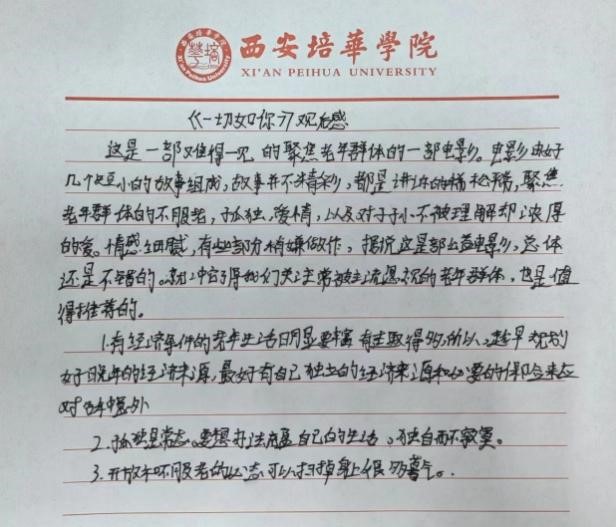 西安培華學院
XI'AN PEIHUA UNIVERSITY
《一切如你》观后感
这是一部难得一见的聚焦老年群体的一部电影。电影由好
几个短小的故事组成,故事并不精彩,都是讲述的稀松,聚焦
老年群体的不服老,孤独,爱情,以及对于子小不被理解却浓厚
的爱。情感细腻,有些部分稍嫌做作,据说这是部公益电影,总体
还是不错的。就冲它得我们关注常被主流忽视的老年群体,也是值
得推荐的。
1.有经济条件的老年生活明显要丰富有主取得多,所以,趁早规划
好晚年的经济来源,最好有自己独立的经济来源和必要的保险来应
对意外
2.孤独是常态。要想办法丰盈自己的生活,独自而不寂寞。
3.开放和不服老的心态可以扫掉身上很多暮气。